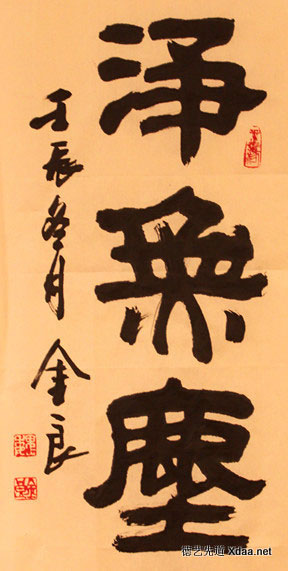 淨無塵
壬辰冬月 金良
德艺先道 Xdaa.net